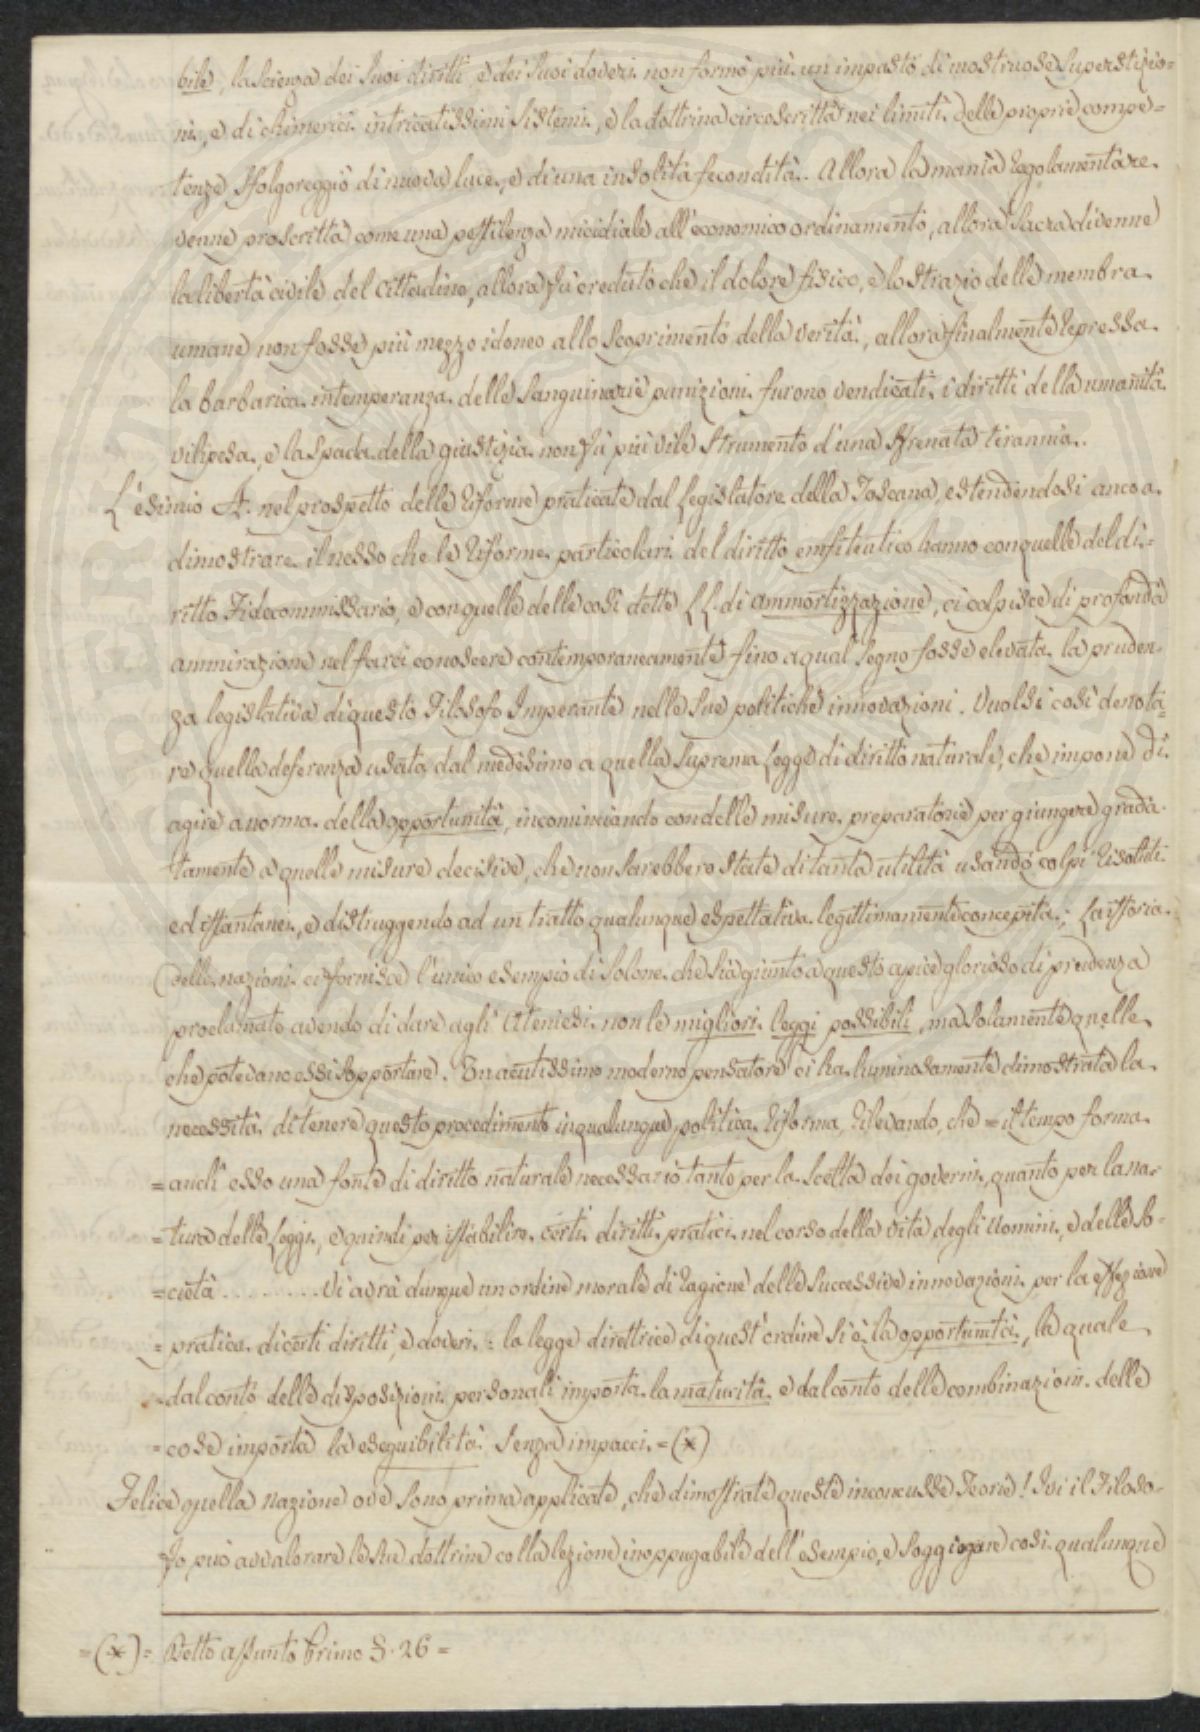 bile, la scienza dei suoi diritti e dei suoi doveri non formò più un impasto di mostruose superstizio=
ni, e di chimerici intricatissimi sistemi, e la dottrina circoscritta nei limiti delle proprie compe=
tenze sfolgoreggiò di nuova luce, e di una insolita fecondità. Allora la manìa regolamentare
venne proscritta come una pestilenza micidiale all'economico ordinamento, allora sacra divenne
la libertà civile del Cittadino, allora fù creduto che il dolore fisico, e lo strazio delle membra
umane non fosse più mezzo idoneo allo scoprimento della verità, allora finalmente repressa
la barbarica intemperanza delle sanguinarie punizioni furono vendicati i diritti della umanità
vilipesa, e la spada della giustizia non fù più vile strumento d'una sfrenata tirannia.
L'esimio A. nel prospetto delle riforme praticate dal Legislatore della Toscana, estendendosi anco a
dimostrare il nesso che le riforme particolari del diritto emfiteutico hanno con quelle del di=
ritto Fidecommissario, e con quelle delle così dette LL. di ammortizzazione, ci colpisce di profonda
ammirazione nel farci conoscere contemporaneamente fino a qual segno fosse elevata la pruden=
za legislativa di questo Filosofo Imperante nelle sue politiche innovazioni. Vuolsi così denota=
re quella deferenza usata dal medesimo a quella suprema Legge di diritto naturale, che impone di
agire a norma della opportunità, incominciando con delle misure preparatorie per giungere grada=
tamente a quelle misure decisive, che non sarebbero state di tanta utilità usando colpi risoluti
ed istantanei, e distruggendo ad un tratto qualunque espettativa legittimamente concepita; La istoria
delle nazioni ci fornisce l'unico esempio di Solone che sia giunto a questo apice glorioso di prudenza
proclamato avendo di dare agli Ateniesi non le migliori leggi possibili, ma solamente quelle
che potevano essi sopportare. Un acutissimo moderno pensatore ci ha luminosamente dimostrata la
necessità di tenere questo procedimento in qualunque politica riforma, rilevando, che = il tempo forma
= anch'esso una fonte di diritto naturale necessario tanto per la scelta dei governi, quanto per la na=
= tura delle Leggi, e quindi per istabilire certi diritti pratici nel corso della vita degli Uomini, e delle So=
= cietà ......... Vi avrà dunque un ordine morale di ragione delle successive innovazioni per la effezione
= pratica di certi diritti, e doveri: la legge direttrice di quest'ordine si è la opportunità, la quale
= dal canto delle disposizioni personali importa la maturità e dal canto delle combinazioni delle
= cose importa la eseguibilità senza impacci = (*)
Felice quella Nazione ove sono prima applicate, che dimostrate queste inconcusse Teorie! Ivi il Filoso=
fo può avvalorare le sue dottrine colla lezione inoppugabile dell'esempio, e soggiogare così qualunque
= (*) = Detto assunto Primo §. 26 =